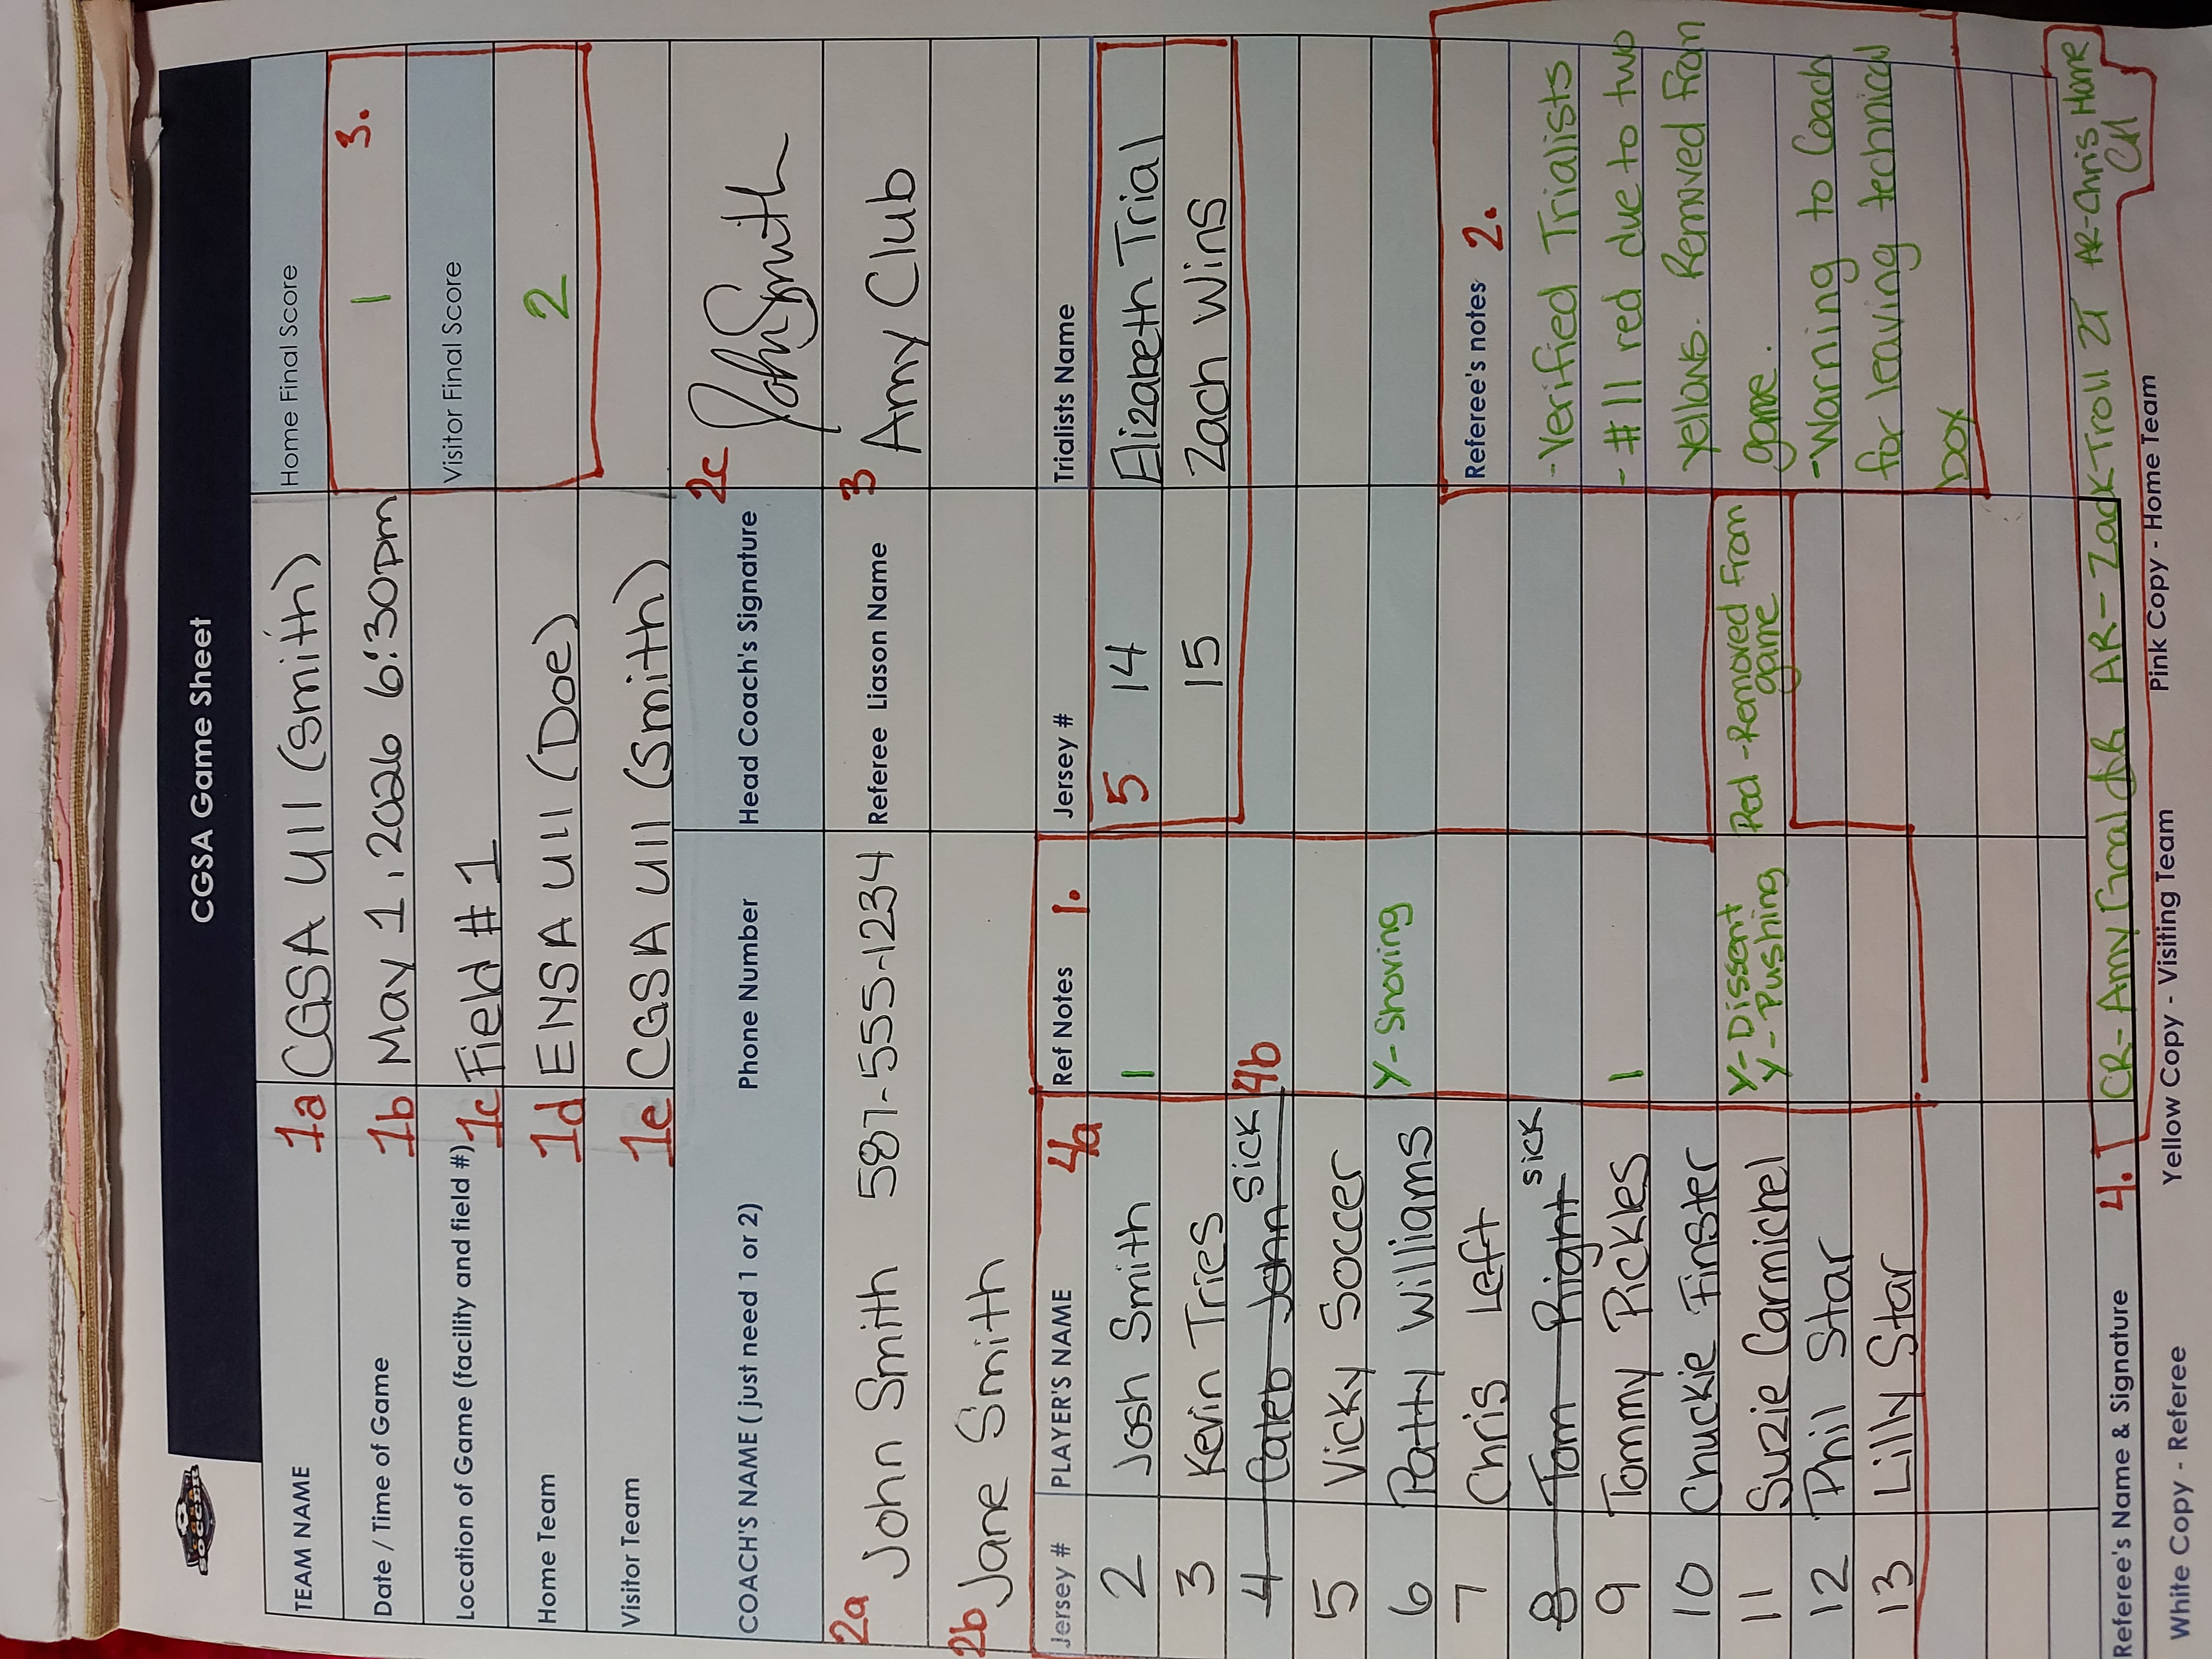 CGSA Game Sheet
TEAM NAME 1a CGSA U11 (Smith) Home Final Score
Date / Time of Game 1b May 1, 2026 6:30pm 1 3.
Location of Game (facility and field #) 1c Field #1 Visitor Final Score
Home Team 1d ENSA U11 (Doe) 2
Visitor Team 1e CGSA U11 (Smith)
COACH'S NAME ( just need 1 or 2) Phone Number Head Coach's Signature 2c John Smith
2a John Smith 587-555-1234 Referee Liason Name 3 Amy Club
2b Jane Smith
Jersey # PLAYER'S NAME 4a Ref Notes 1. Jersey # Trialists Name
2 Josh Smith 1 5 14 Elizabeth Trial
3 Kevin Tries 15 Zach Wins
4 Caleb John Sick 4b
5 Vicky Soccer
6 Patty Williams Y- Shoving
7 Chris Left Referee's notes 2.
8 Tom Right sick -Verified Trialists
9 Tommy Pickles 1 - #11 red due to two
10 Chuckie Finster yellows. Removed from
11 Suzie Carmichel Y-Dissent Red -Removed from game.
Y-Pushing game
12 Phil Star -Warning to Coach
13 Lilly Star for leaving technical
box
Referee's Name & Signature 4. CR-Amy AR- Zack Troll ZT AR-Chris Home CH
White Copy - Referee Yellow Copy - Visiting Team Pink Copy - Home Team